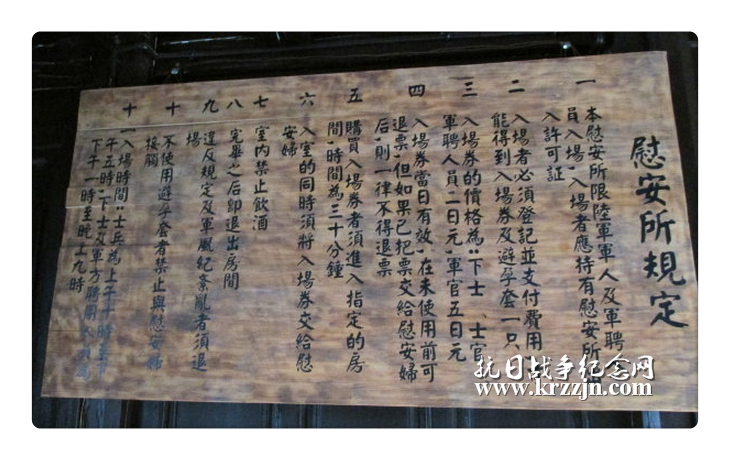 慰安所規定
一
本慰安所限陸軍軍人及軍聘
員入場,入場者應持有慰安所
入許可証
二
入場者必須登記並支付費用
能得到入場券及避孕套一只
三
入場券的價格為:下士、士官
軍聘人員二日元,軍官五日元
四
入場券當日有效,在未使用前可
退票,但如果已把票交給慰安婦
后,則一律不得退票
五
購買入場券者須進入指定的房
間,時間為三十分鐘
六
入室的同時須將入場券交給慰
安婦
七
室内禁止飲酒
八
完畢之后即退出房間
九
違反規定及軍風紀紊亂者須退
場
十
不使用避孕套者禁止與慰安婦
接觸
十一
入場時間:士兵為上午十時至下
午五時,下士及軍方聘用人員為
下午一時至晚上九時
抗日战争纪念网
www.krzzjn.com